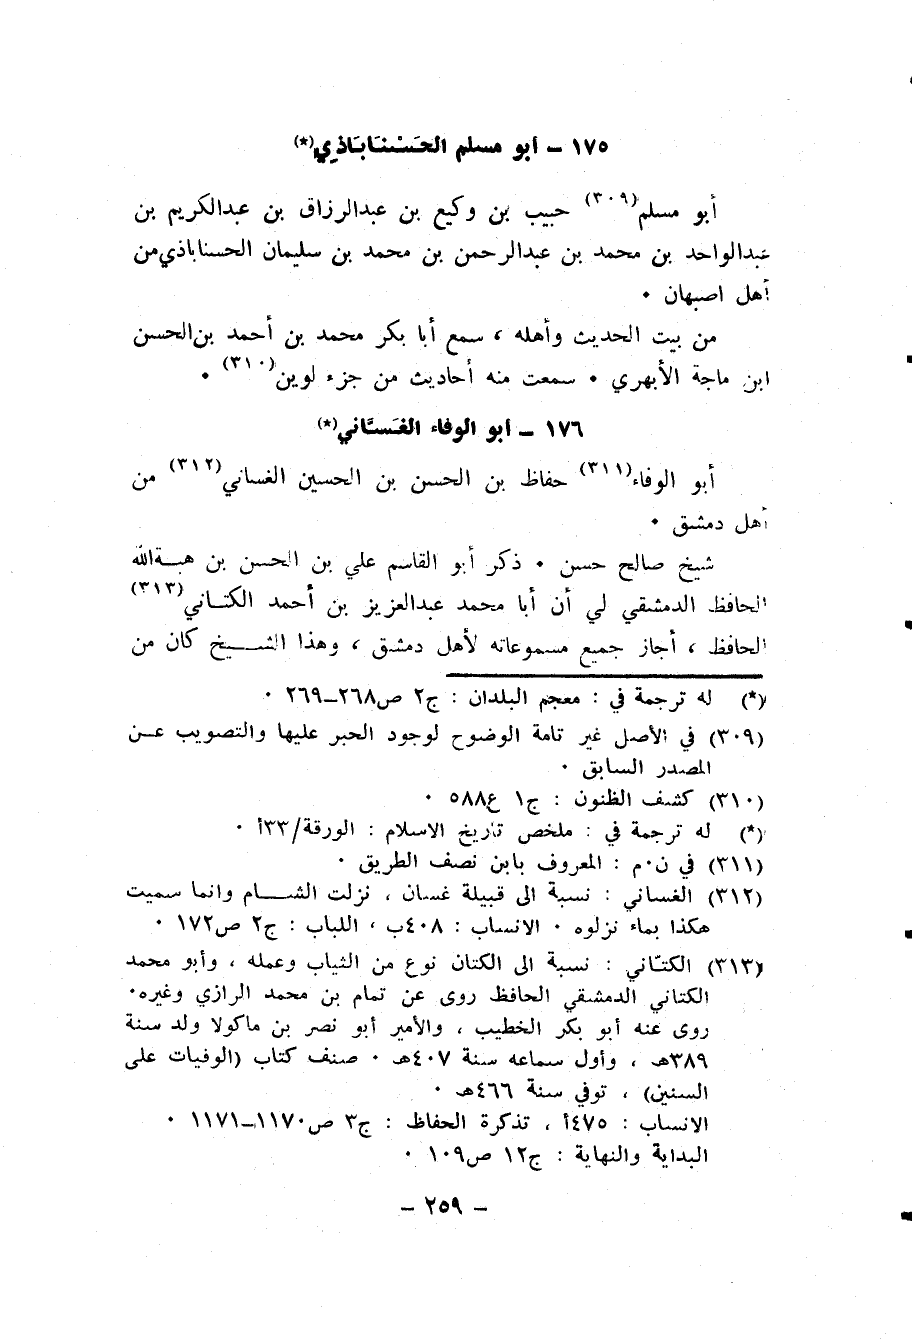 ١٧٥ ـ أبو مسلم الحَسْنَابَاذي(*)
أبو مسلم(٣٠٩) حبيب بن وكيع بن عبدالرزاق بن عبدالكريم بن
عبدالواحد بن محمد بن عبدالرحمن بن محمد بن سليمان الحسناباذي من
أهل اصبهان ٠
من بيت الحديث وأهله ، سمع أبا بكر محمد بن أحمد بن الحسن
ابن ماجة الأبهري ٠ سمعت منه أحاديث من جزء لوين(٣١٠) ٠
١٧٦ ـ أبو الوفاء الغَسَّاني(*)
أبو الوفاء(٣١١) حفاظ بن الحسن بن الحسين الغساني(٣١٢) من
أهل دمشق ٠
شيخ صالح حسن ٠ ذكر أبو القاسم علي بن الحسن بن هبةالله
الحافظ الدمشقي لي أن أبا محمد عبدالعزيز بن أحمد الكتاني(٣١٣)
الحافظ ، أجاز جميع مسموعاته لأهل دمشق ، وهذا الشيخ كان من
(*) له ترجمة في : معجم البلدان : ج٢ ص٢٦٨ـ٢٦٩ ٠
(٣٠٩) في الأصل غير تامة الوضوح لوجود الحبر عليها والتصويب عن
المصدر السابق ٠
(٣١٠) كشف الظنون : ج١ ع٥٨٨ ٠
(*) له ترجمة في : ملخص تاريخ الاسلام : الورقة/٣٣أ ٠
(٣١١) في ن٠م : المعروف بابن نصف الطريق ٠
(٣١٢) الغساني : نسبة الى قبيلة غسان ، نزلت الشام وانما سميت
هكذا بماء نزلوه ٠ الانساب : ٤٠٨ب ، اللباب : ج٢ ص١٧٢ ٠
(٣١٣) الكتّاني : نسبة الى الكتان نوع من الثياب وعمله ، وأبو محمد
الكتاني الدمشقي الحافظ روى عن تمام بن محمد الرازي وغيره٠
روى عنه أبو بكر الخطيب ، والأمير أبو نصر بن ماكولا ولد سنة
٣٨٩هـ ، وأول سماعه سنة ٤٠٧هـ ٠ صنف كتاب (الوفيات على
السنين) ، توفي سنة ٤٦٦هـ ٠
الانساب : ٤٧٥أ ، تذكرة الحفاظ : ج٣ ص١١٧٠ـ١١٧١ ٠
البداية والنهاية : ج١٢ ص١٠٩ ٠
ـ ٢٥٩ ـ